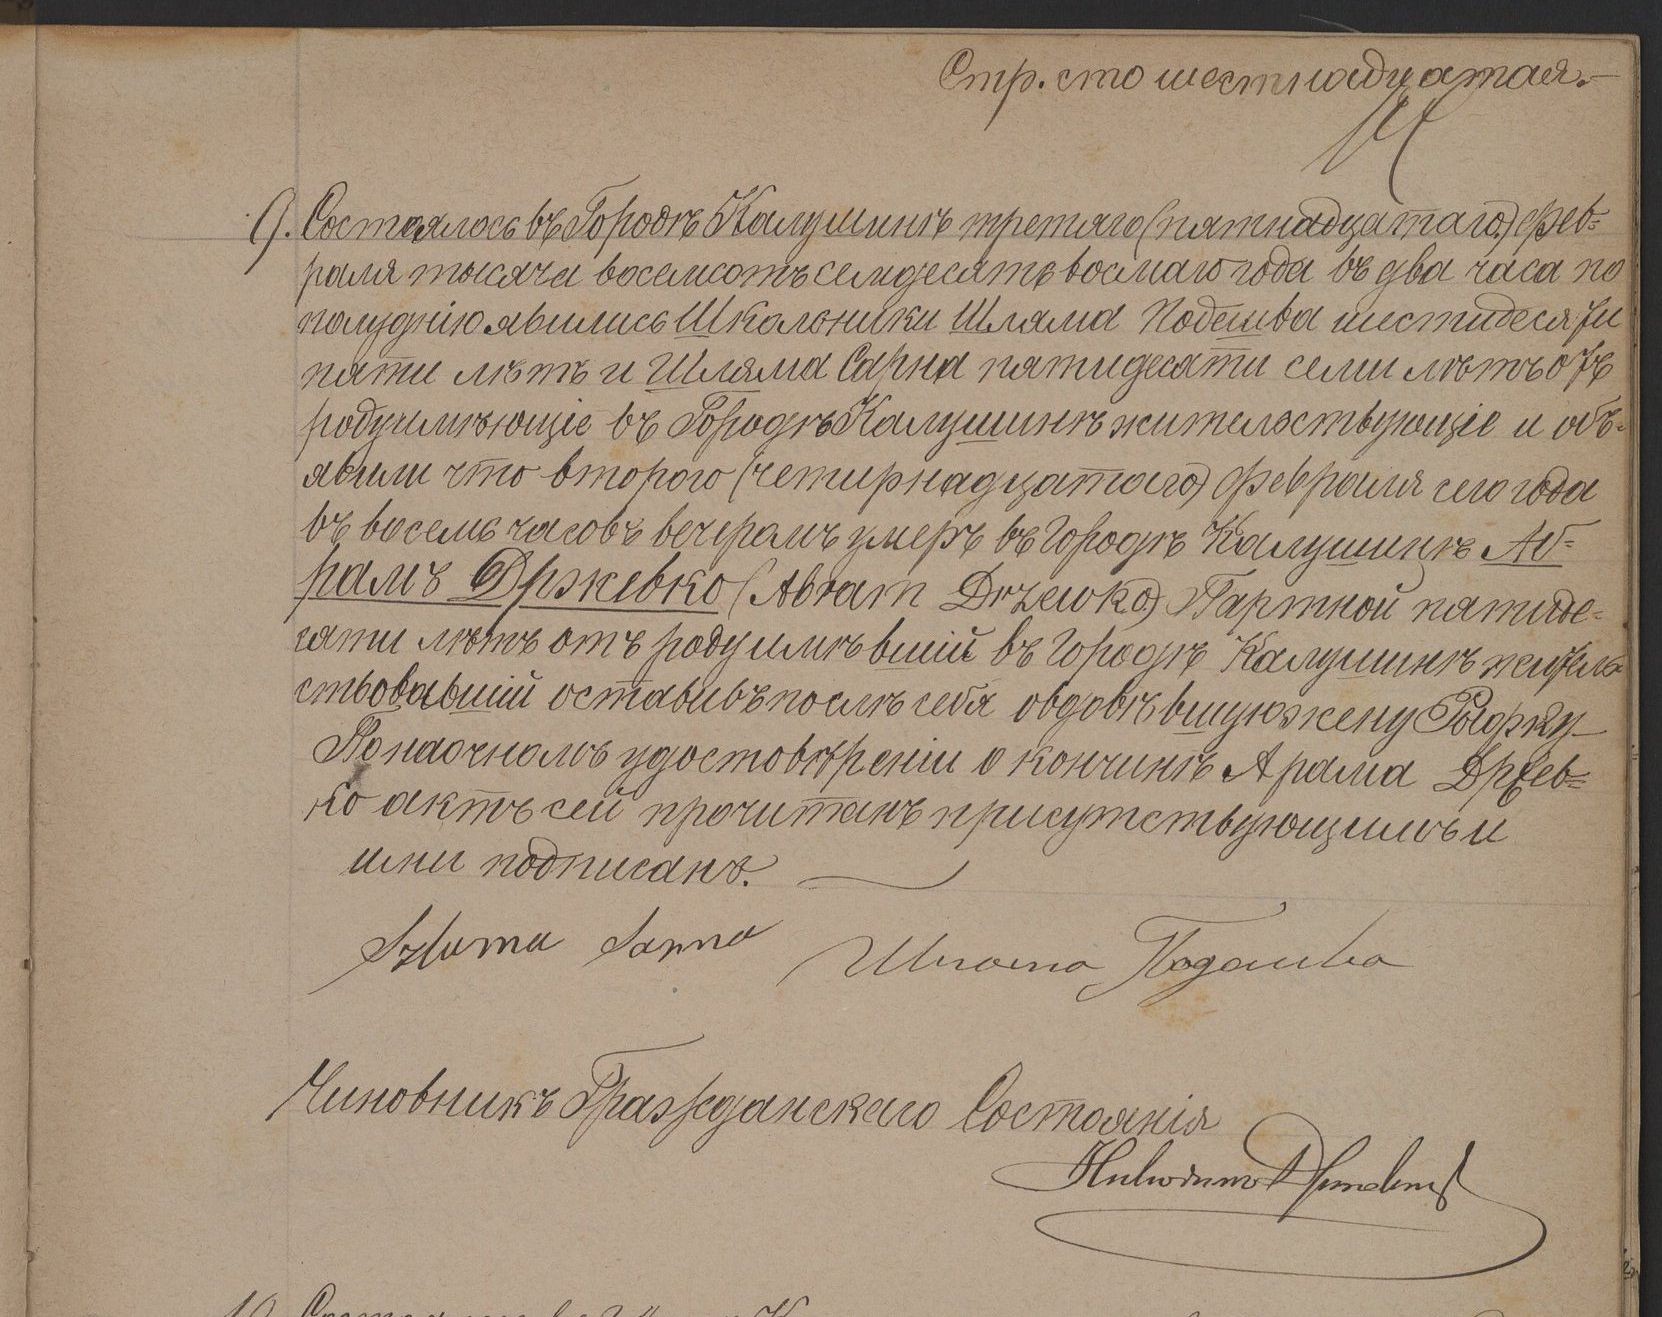 Стр. сто шестнадцатая.—
9. Состоялось въ Городѣ Калушинѣ третяго (пятнадцатаго) фев=
раля тысяча восемсотъ семдесятъ восмаго года въ два часа по
полуднію явились Школьники Шляма Подешва шестидесяти
пяти лѣтъ и Шляма Сарна пятидесяти семи лѣтъ отъ
роду имѣющіе въ Городѣ Калушинѣ жительствующіе и объ=
явили что второго (четирнадцатаго) февраля сего года
въ восемь часовъ вечеромъ умеръ въ Городѣ Калушинѣ Аб=
рамъ Држевко (Abram Drzewko) Партной пятиде=
сяти лѣтъ отъ роду имѣвшій въ Городѣ Калушинѣ житель
ствовавшій оставивъ послѣ себя овдовѣвшую жену Рыфку
По наочномъ удостовѣреніи о кончинѣ Арама Држев=
ко актъ сей прочитанъ присутствующимъ и
ими подписанъ.
Szlama Sarna Шлама Подешва
Чиновникъ Гражданскаго Состоянія
10. Состоялось въ